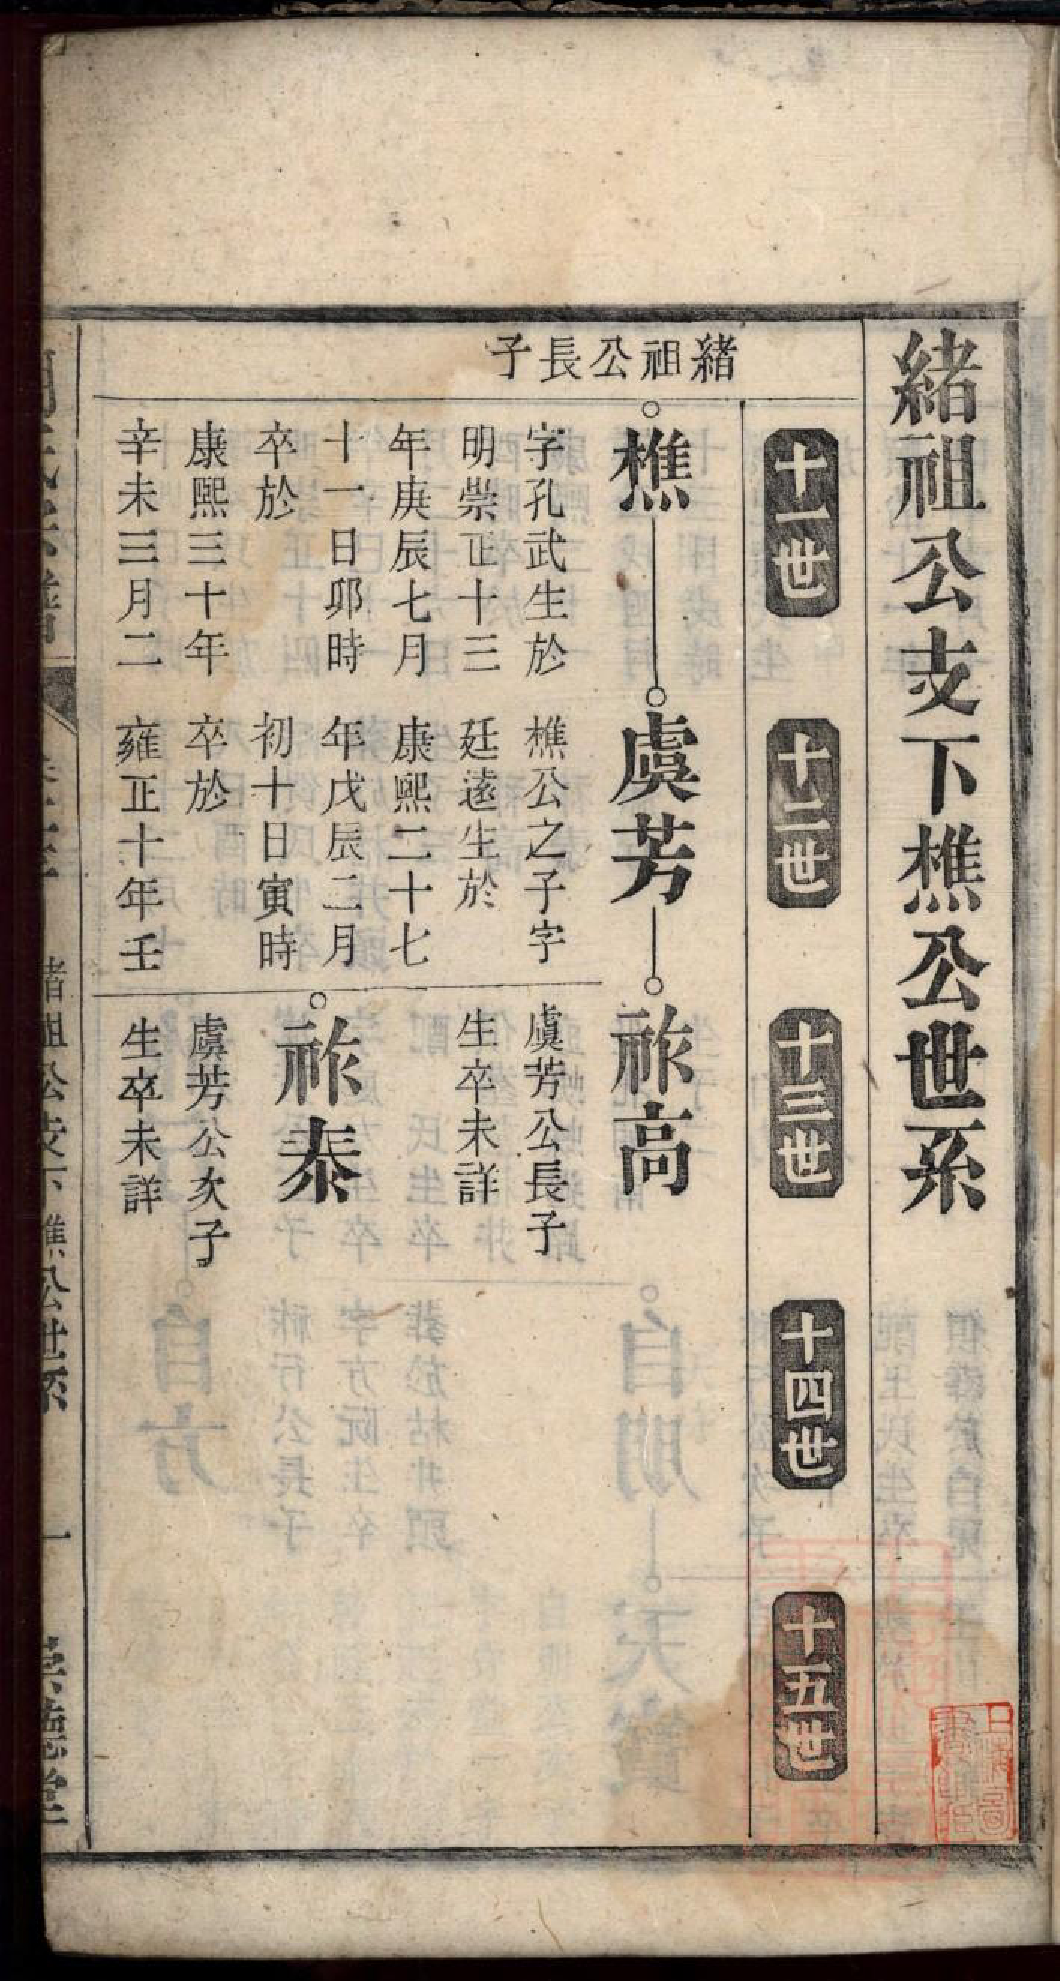 緒祖公支下樵公世系
十一世
十二世
十三世
十四世
十五世
緒祖公長子
樵
字孔武生於
明崇正十三
年庚辰七月
十一日卯時
卒於
康熙三十年
辛未三月二
虞芳
樵公之子字
廷遠生於
康熙二十七
年戊辰二月
初十日寅時
卒於
雍正十年壬
祚高
虞芳公長子
生卒未詳
祚泰
虞芳公次子
生卒未詳
緒祖公支下樵公世系
一
崇德堂